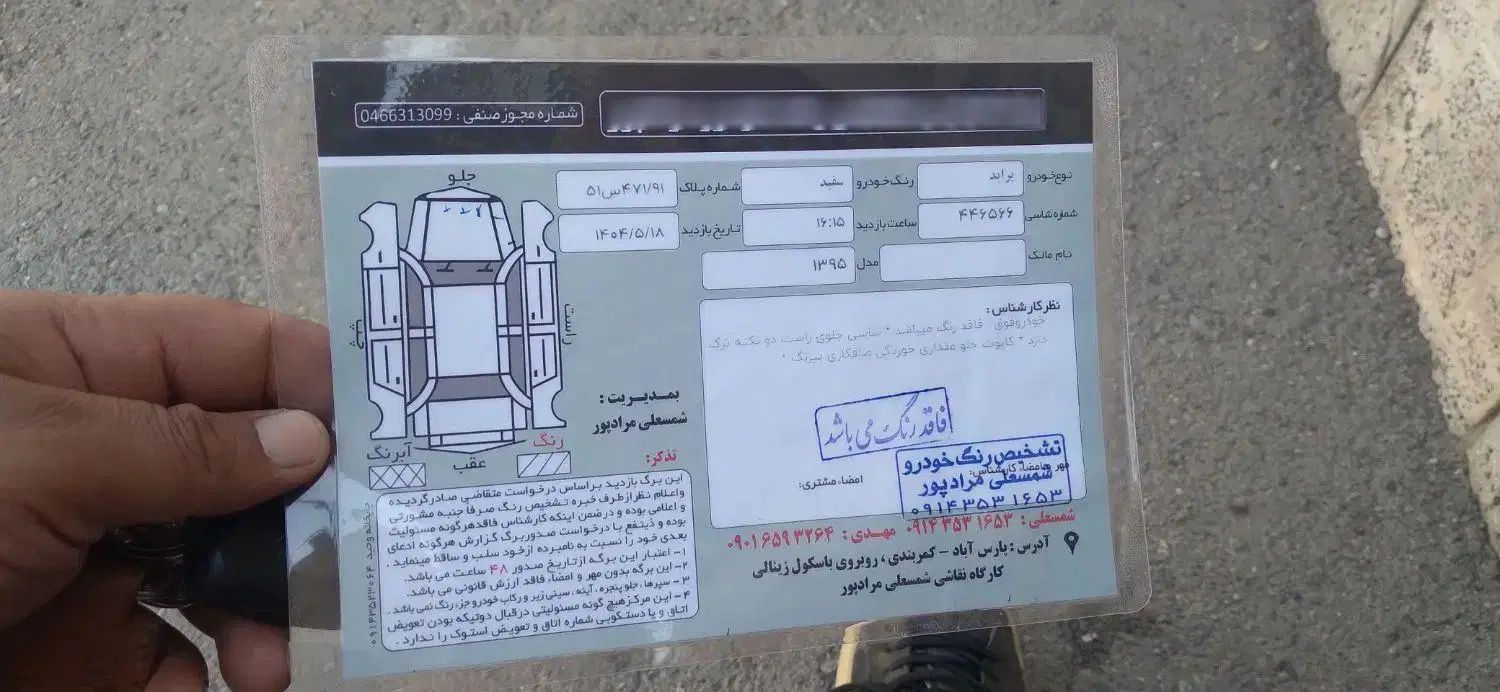 شماره مجوز صنفی : 0466313099
نوع خودرو پراید رنگ خودرو سفید شماره پلاک ۵۱س۴۷۱/۹۱
شماره شاسی ۴۴۶۵۶۶ ساعت بازدید ۱۶:۱۵ تاریخ بازدید ۱۴۰۴/۵/۱۸
نام مالک مدل ۱۳۹۵
جلو
راست
چپ
عقب
رنگ
آبرنگ
نظر کارشناس :
خودروفوق فاقد رنگ میباشد * شاسی جلوی راست دو تکته ترک
دارد * کاپوت جلو مقداری خوردگی صافکاری بیرنگ *
فاقد رنگ می باشد
مهر و امضاء کارشناس:
امضاء مشتری:
تشخیص رنگ خودرو
شمسعلی مرادپور
۰۹۱۴۳۵۳۱۶۵۳
بمدیریت :
شمسعلی مرادپور
تذکر:
این برگ بازدید بر اساس درخواست متقاضی صادر گردیده
و اعلام نظر از طرف خبره تشخیص رنگ صرفا جنبه مشورتی
و اعلامی بوده و در ضمن اینکه کارشناس فاقد هرگونه مسئولیت
بوده و ذینفع با درخواست صدور برگ گزارش هرگونه ادعای
بعدی خود را نسبت به نامبرده از خود سلب و ساقط مینماید .
۱- اعتبار این برگه از تاریخ صدور ۴۸ ساعت می باشد.
۲- این برگه بدون مهر و امضاء، فاقد ارزش قانونی می باشد.
۳- سپرها، جلو پنجره، آینه، سینی زیر و رکاب خودرو جزء رنگ نمی باشد .
۴- این مرکز هیچ گونه مسئولیتی در قبال دوتیکه بودن تعویض
اتاق و یا دستکوبی شماره اتاق و تعویض استوک را ندارد .
شمسعلی : ۰۹۱۴۳۵۳۱۶۵۳ مهدی : ۰۹۰۱۶۵۹۳۲۶۴
آدرس : پارس آباد - کمربندی ، روبروی باسکول زینالی
کارگاه نقاشی شمسعلی مرادپور
چاپخانه وحید ۰۹۱۴۳۵۲۳۰۶۴